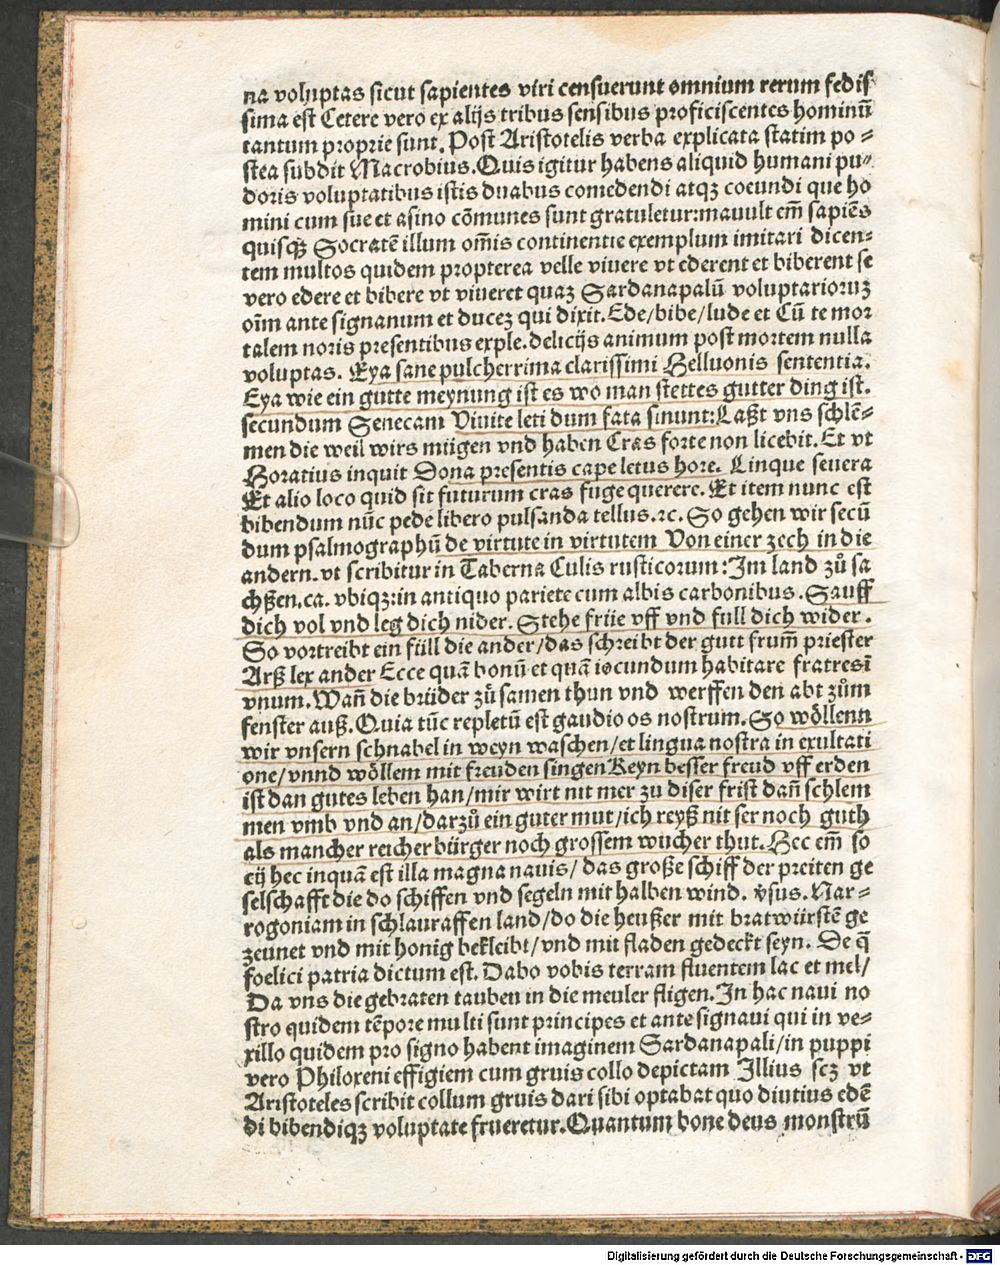 na voluptas sicut sapientes viri censuerunt omnium rerum fedis
sima est Cetere vero ex alijs tribus sensibus proficiscentes hominū
tantum proprie sunt. Post Aristotelis verba explicata statim po⸗
stea subdit Macrobius. Quis igitur habens aliquid humani pu⸗
doris voluptatibus istis duabus comedendi atqꝫ coeundi que ho
mini cum sue et asino cōmunes sunt gratuletur: mauult em̄ sapiēs
quisqꝫ Socratē illum om̄is continentie exemplum imitari dicen⸗
tem multos quidem propterea velle viuere vt ederent et biberent se
vero edere et bibere vt viueret quaꝫ Sardanapalū voluptarioruꝫ
oīm ante signanum et duceꝫ qui dixit. Ede/bibe/lude et Cū te mor
talem noris presentibus exple. delicijs animum post mortem nulla
voluptas. Eya sane pulcherrima clarissimi Helluonis sententia.
Eya wie ein gutte meynung ist es wo man stettes gutter ding ist.
secundum Senecam Viuite leti dum fata sinunt: Laßt vns schlē⸗
men die weil wirs mügen vnd haben Cras forte non licebit. Et vt
Horatius inquit Dona presentis cape letus hore. Linque seuera
Et alio loco quid sit futurum cras fuge querere. Et item nunc est
bibendum nūc pede libero pulsanda tellus. ⁊c. So gehen wir secū
dum psalmographū de virtute in virtutem Von einer zech in die
andern. vt scribitur in Taberna Culis rusticorum: Im land zů sa
chßen. ca. vbiqꝫ: in antiquo pariete cum albis carbonibus. Sauff
dich vol vnd leg dich nider. Stehe früe vff vnd full dich wider.
So vortreibt ein füll die ander/das schreibt der gutt frum̄ priester
Arß lex ander Ecce quā bonū et quā iocundum habitare fratres ī
vnum. Wan̄ die brüder zů samen thun vnd werffen den abt zům
fenster auß. Quia tūc repletū est gaudio os nostrum. So wöllenn
wir vnsern schnabel in weyn waschen/et lingua nostra in exultati
one/vnnd wöllem mit freuden singen Keyn besser freud vff erden
ist dan gutes leben han/mir wirt nit mer zu diser frist dan̄ schlem
men vmb vnd an/darzů ein guter mut/ich reyß nit ser noch guth
als mancher reicher bürger noch grossem wucher thut. Hec em̄ so
cij hec inquā est illa magna nauis/ das große schiff der preiten ge
selschafft die do schiffen vnd segeln mit halben wind. v̄sus. Nar⸗
rogoniam in schlauraffen land/do die heußer mit bratwürstē ge
zeunet vnd mit honig bekleibt/vnd mit fladen gedeckt seyn. De q̄
foelici patria dictum est. Dabo vobis terram fluentem lac et mel/
Da vns die gebraten tauben in die meuler fligen. In hac naui no
stro quidem tēpore multi sunt principes et ante signaui qui in ve⸗
xillo quidem pro signo habent imaginem Sardanapali/in puppi
vero Philoxeni effigiem cum gruis collo depictam Illius scꝫ vt
Aristoteles scribit collum gruis dari sibi optabat quo diutius edē
di bibendiqꝫ voluptate frueretur. Quantum bone deus monstrū
Digitalisierung gefördert durch die Deutsche Forschungsgemeinschaft - DFG